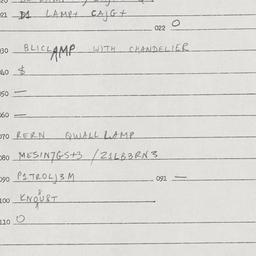 021 D1 LAMP+ CAJG+
022 O
030 BLICLAMP WITH CHANDELIER
040 $
050 —
060 —
070 RERN QWALL LAMP
080 MESIN7GS+3 / 21LB3RN3
090 P1TROLJ3M 091 —
100 KNOU8T
110 O